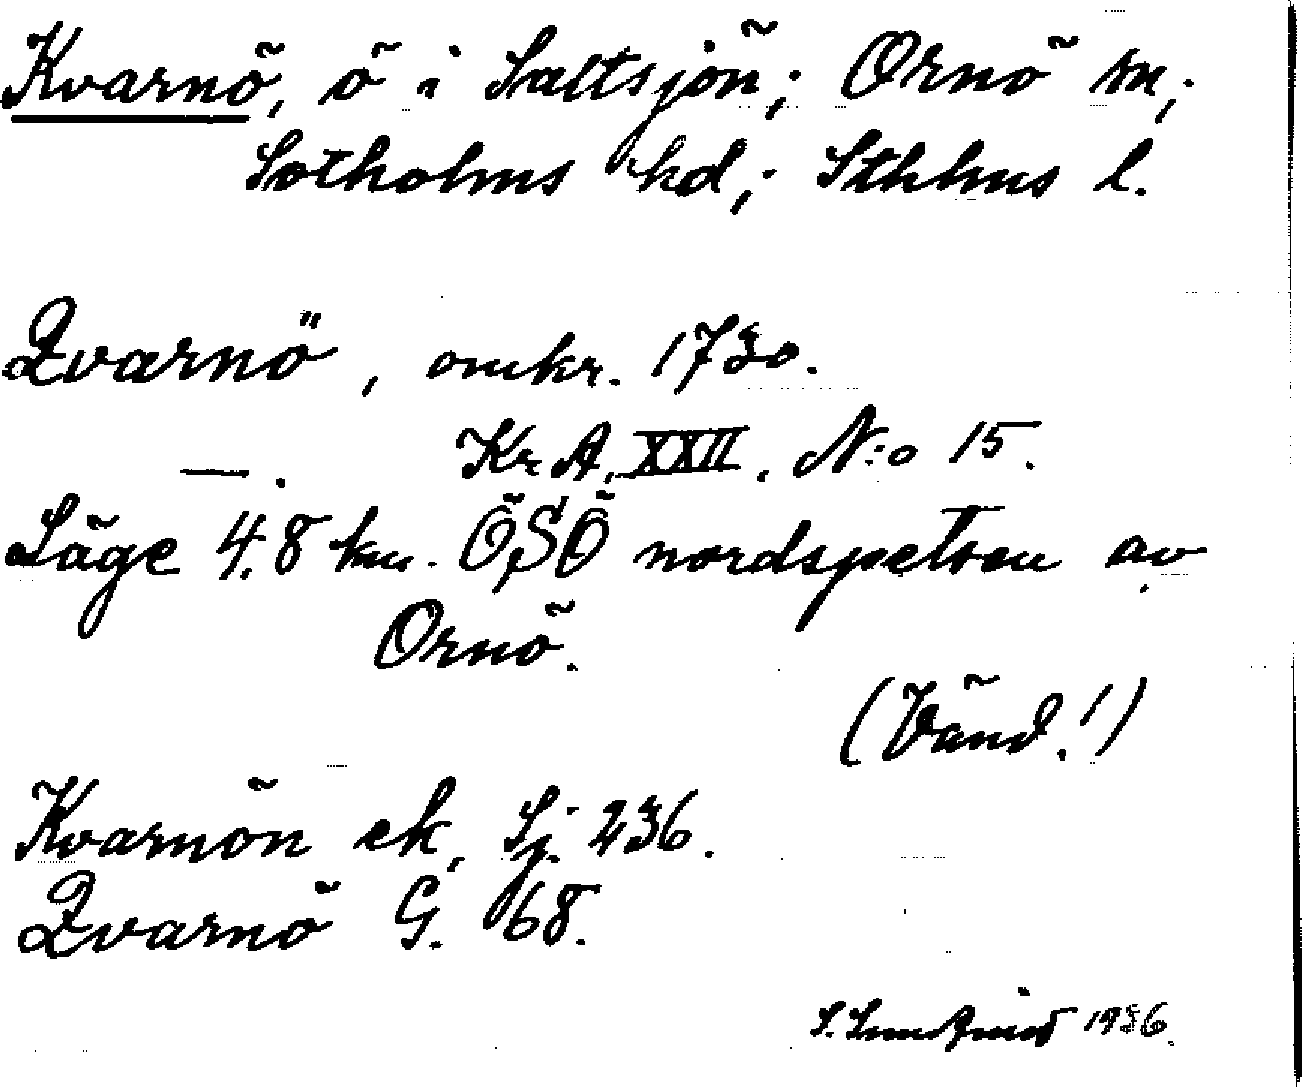 Kvarnö, ö i Saltsjön; Ornö sn,
Sotholms hd; Sthlms l.
Qvarnö, omkr. 1730.
—. Kr A, XXII, N:o 15.
Läge 4.8 km. ÖSÖ nordspetsen av
Ornö.
(Vänd!)
Kvarnön ek, Sj. 236.
Qvarnö G. 68.
S. 1936